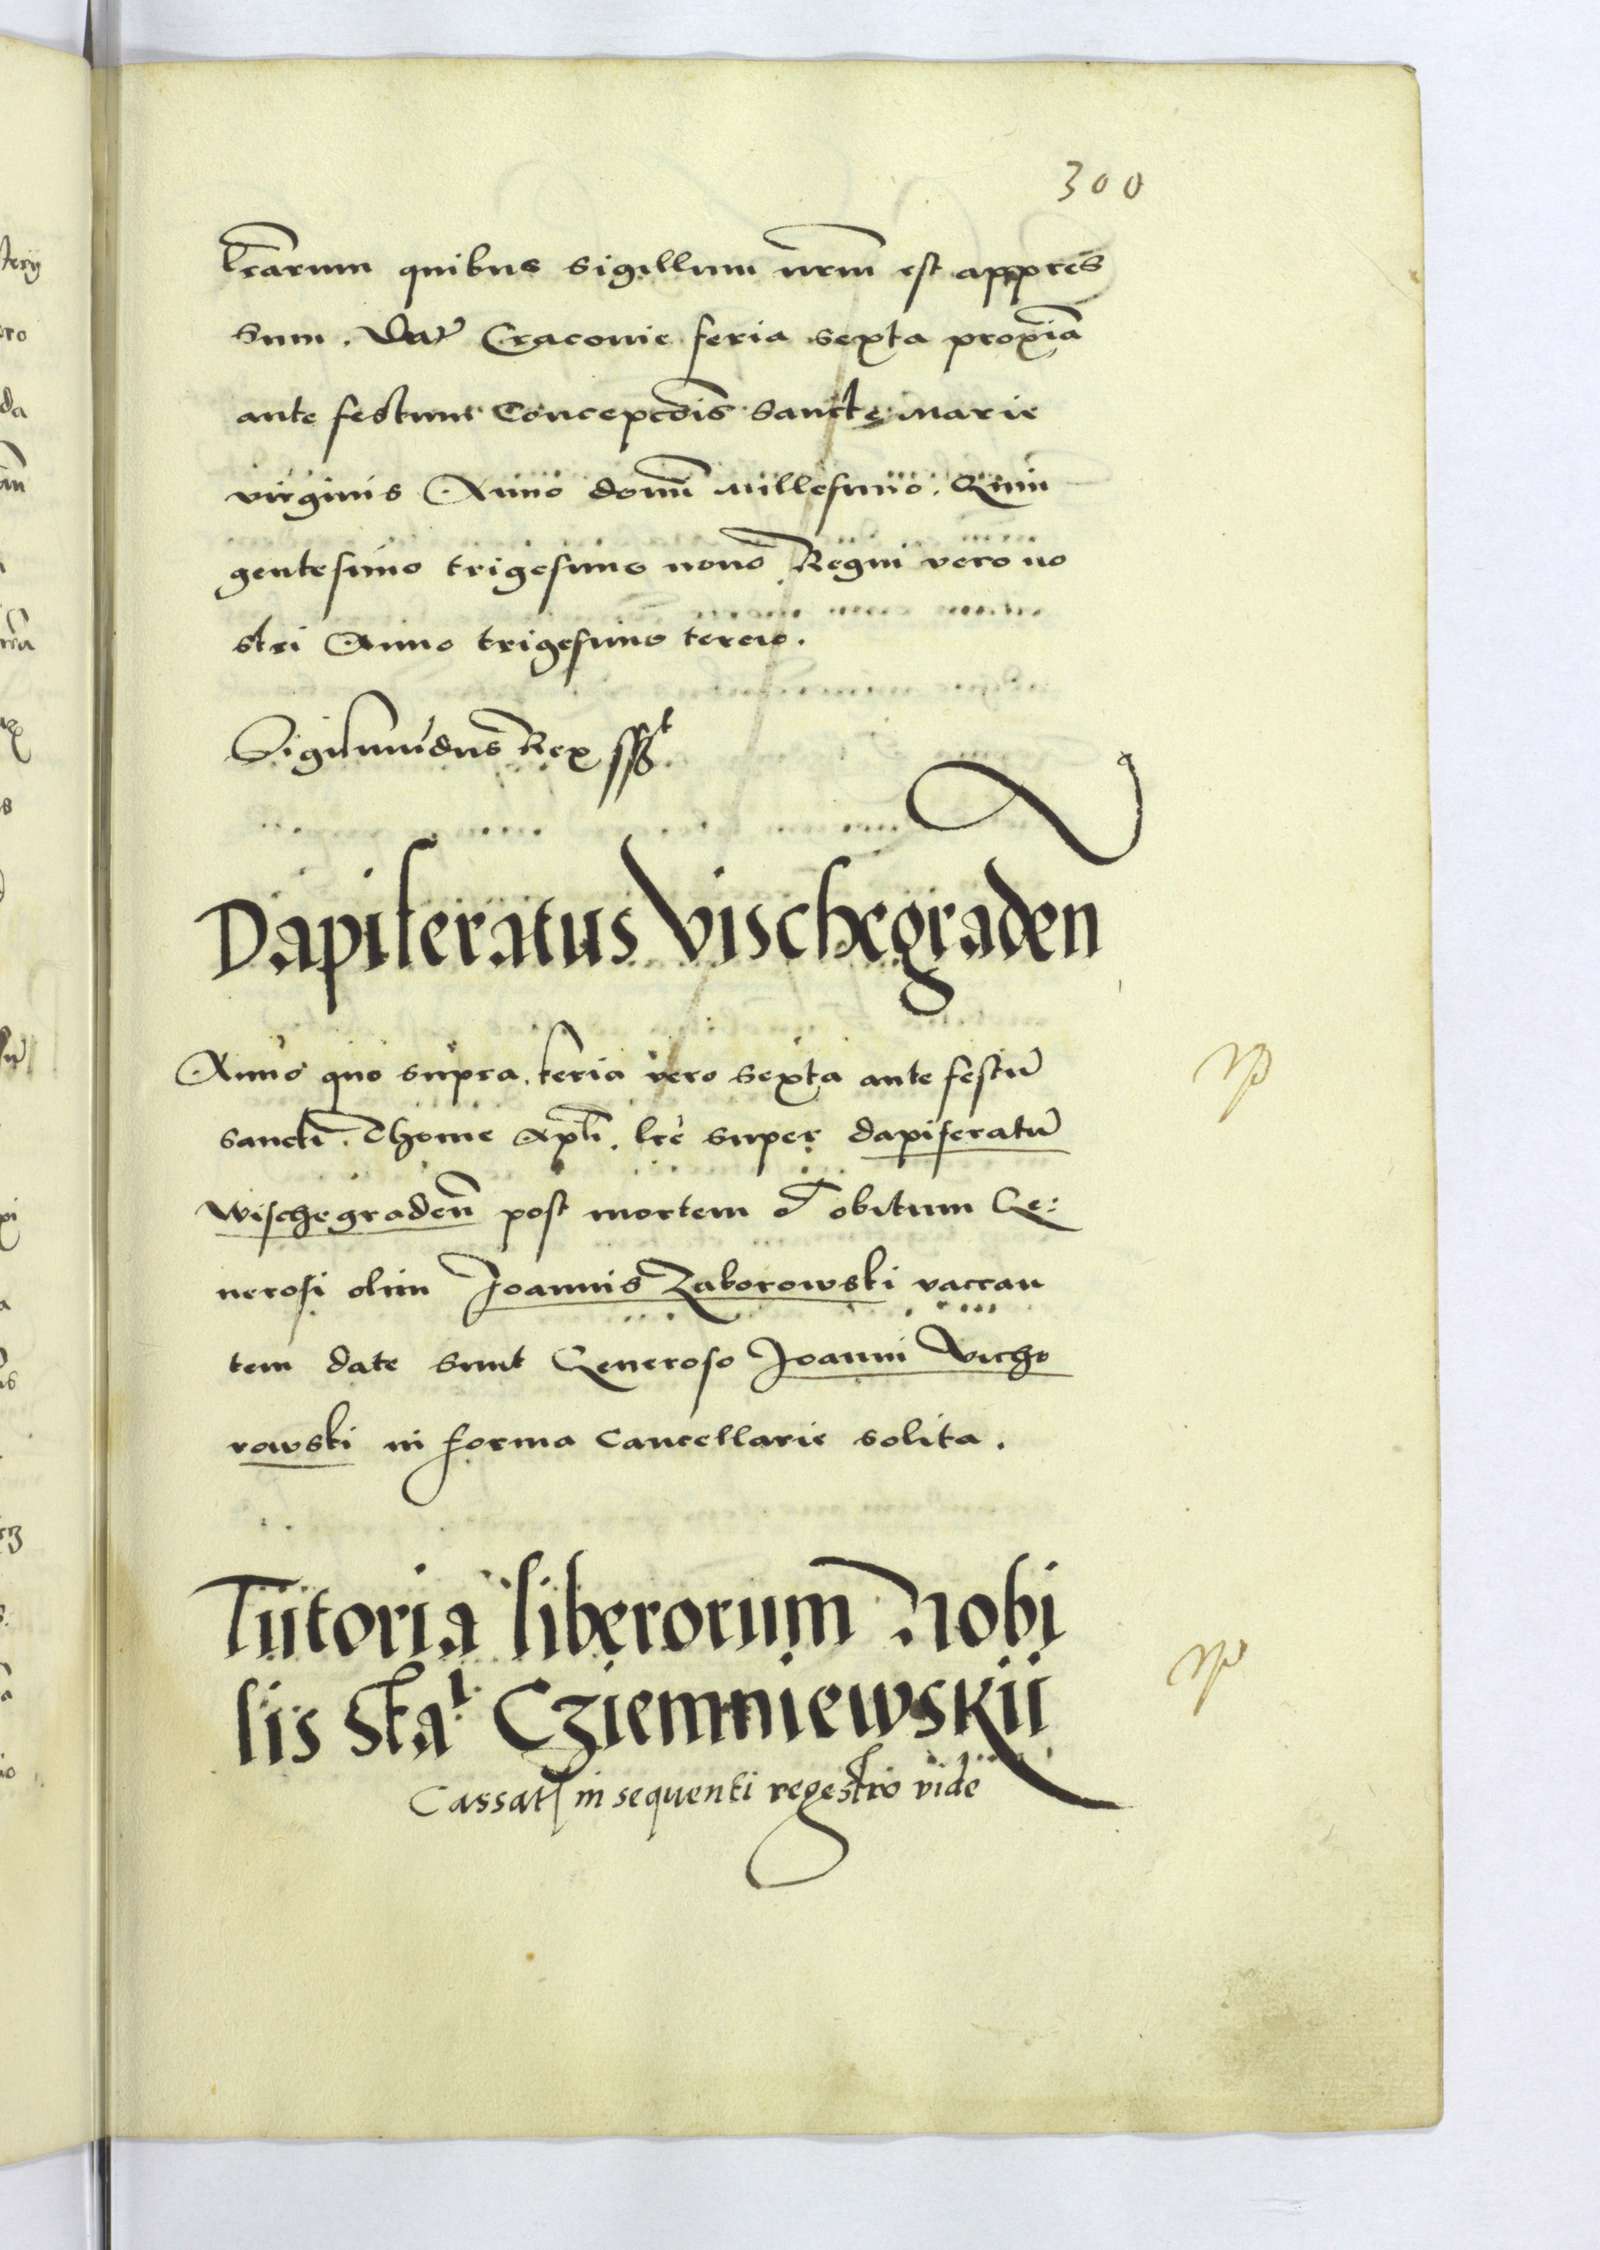 300
lrarum quibus sigillum nrm est appres
sum. Dat Craconie feria sexta proxia
ante festum Concepcois Sancte Marie
virginis Anno domi Millesimo. Quin
gentesimo trigesimo nono Regni vero no
stri Anno trigesimo tercio.
Sigismudus Rex sst
Dapiferatus Vischegraden
Anno quo supra. feria vero sexta ante festu
sancti. Thome Apli. lre super dapiferatu
Wischegraden post mortem et obitum Ge:
nerosi olim Joannis Zaborowski vaccan
tem date sunt Generoso Joanni Vicho
rowski in forma Cancellarie solita.
Tutoria liberorum Nobi
lis Stai Cziemniewskii
Cassat in sequenti regestro vide